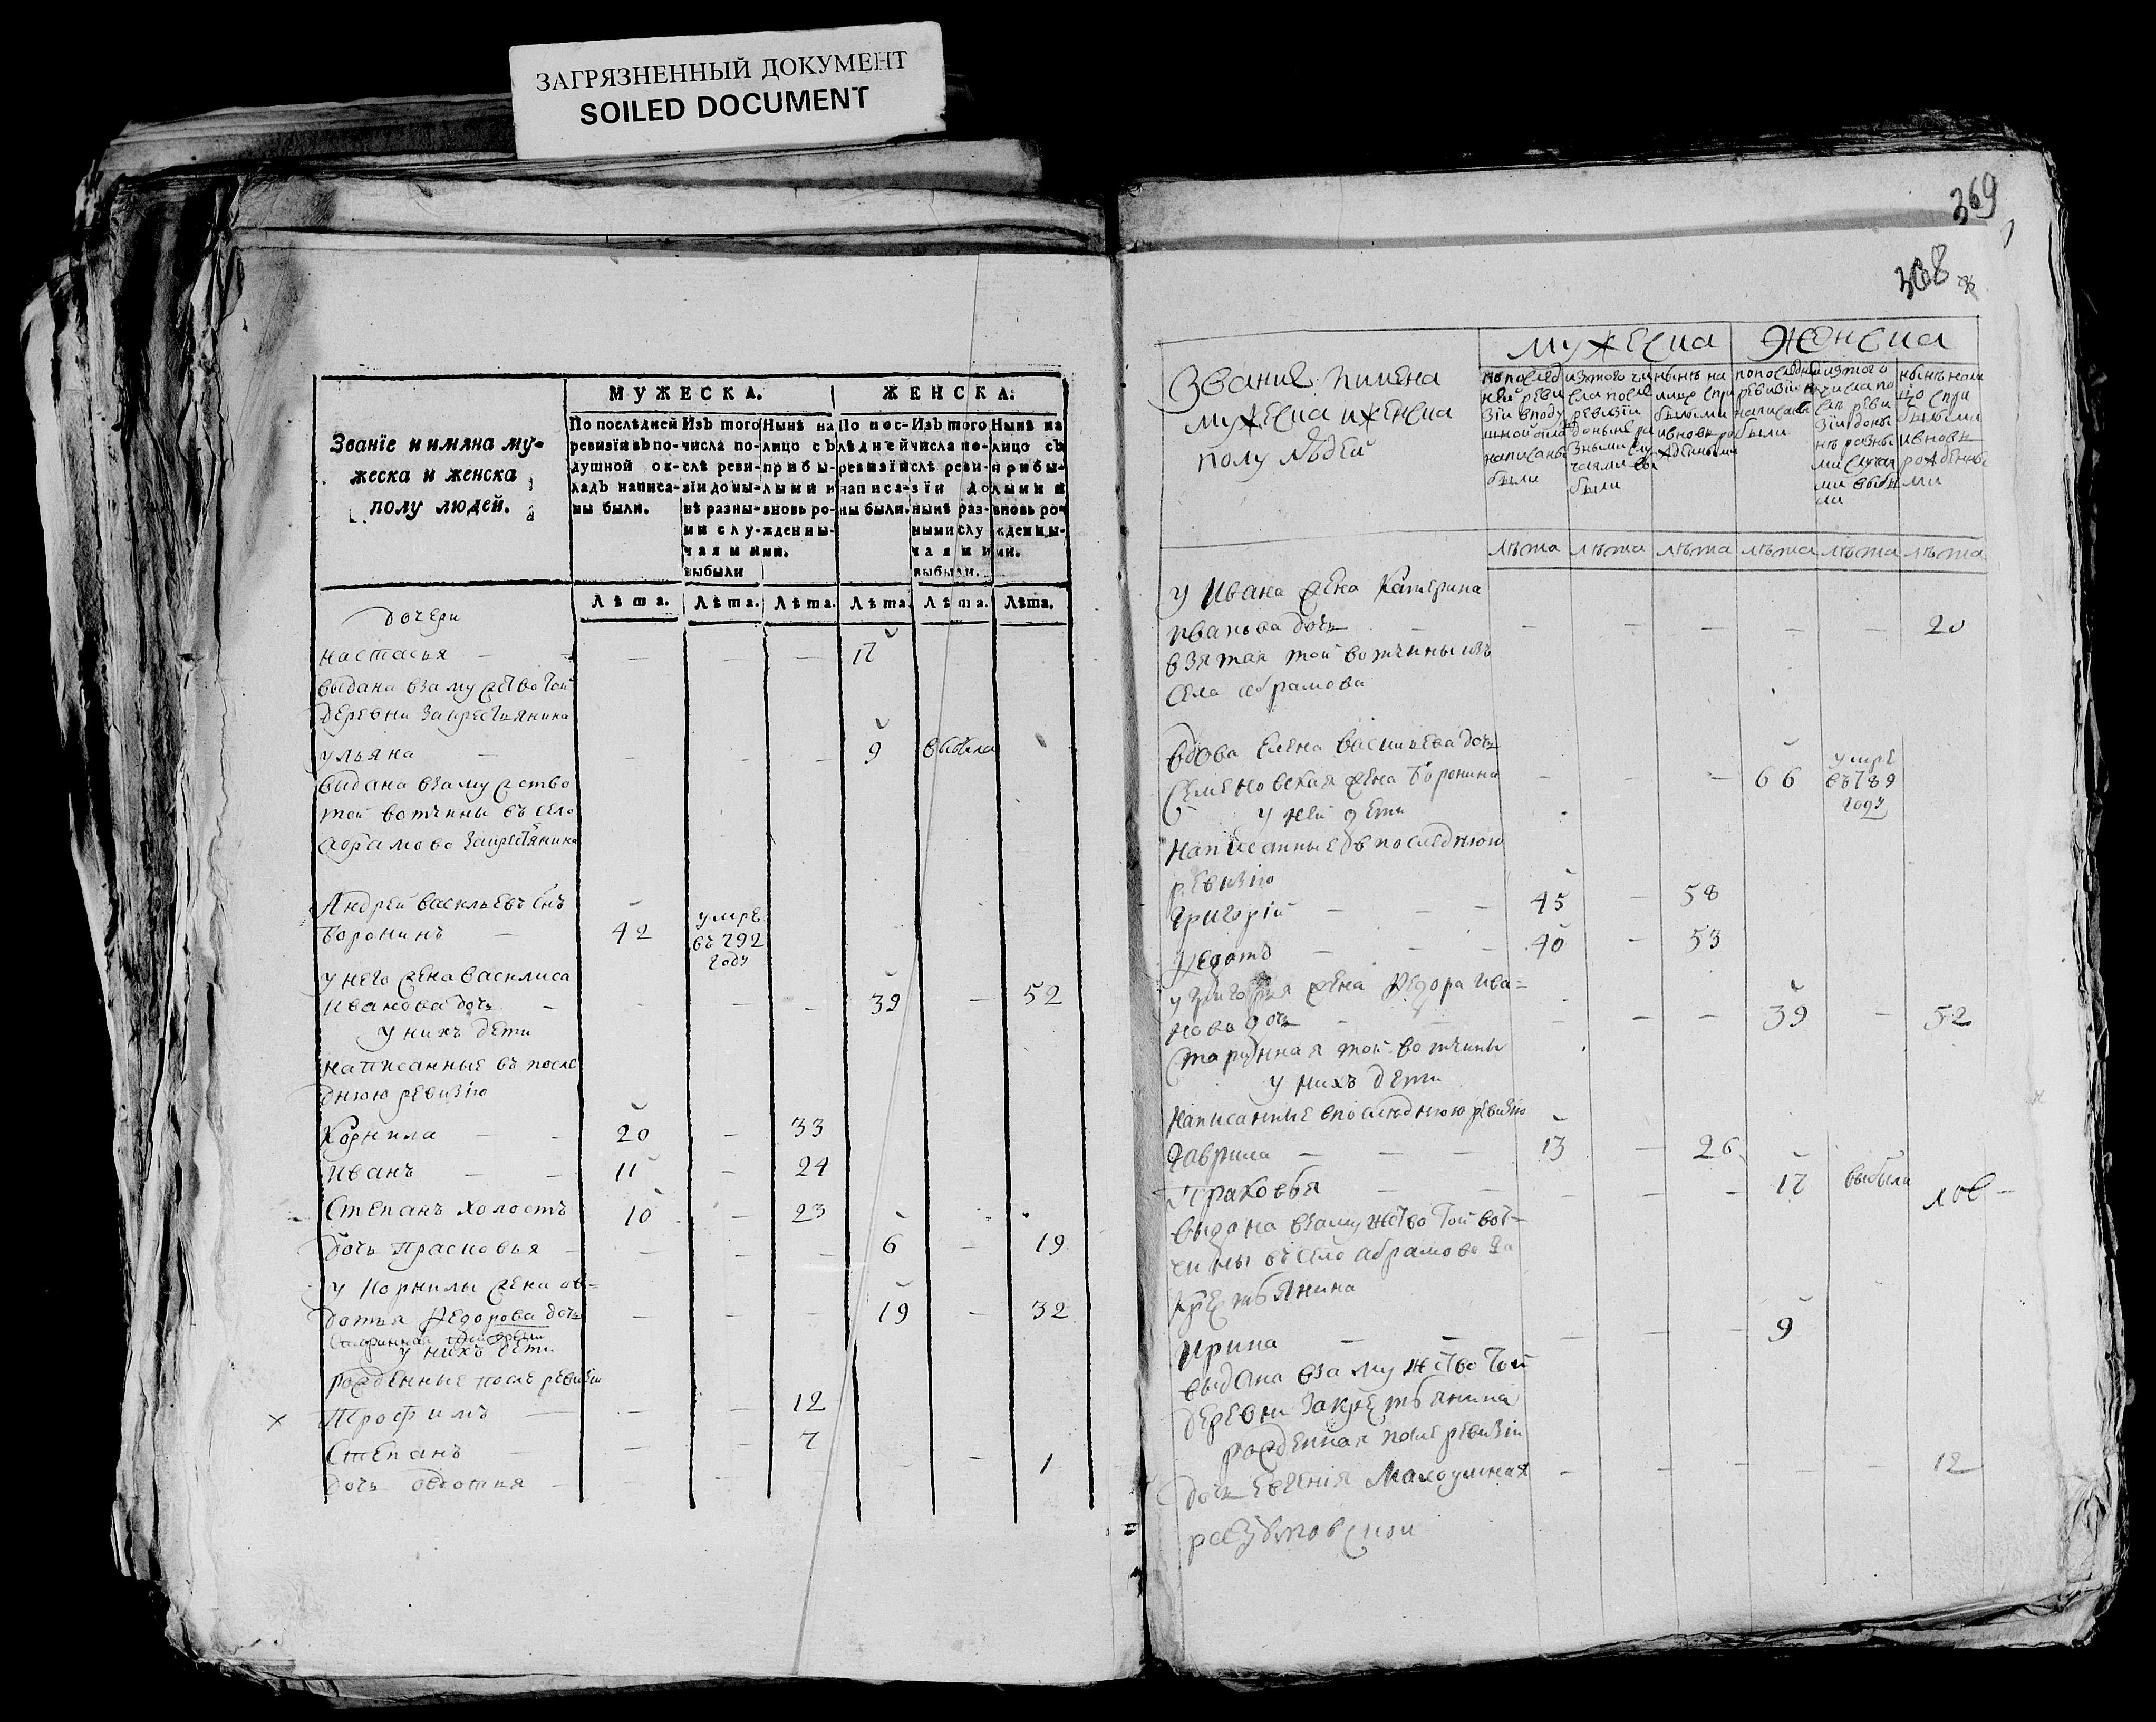 ЗАГРЯЗНЕННЫЙ ДОКУМЕНТ
SOILED DOCUMENT
Званїе и имяна му-
жеска и женска
полу людей.
МУЖЕСКА.
По послѣдней
ревизїи въ по-
душной ок-
ладъ написа-
ны были.
Изъ того
числа по-
слѣ реви-
зїи до ны-
нѣ разны-
ми слу-
чаями
выбыли
Нынѣ на
лицо съ
прибы-
лыми и
вновь ро-
жденны-
ми.
ЖЕНСКА:
По пос-
лѣдней
ревизїи
написа-
ны были.
Изъ того
числа по-
слѣ реви-
зїи до
нынѣ раз-
ными слу
чаями
выбыли.
Нынѣ на
лицо съ
прибы-
лыми и
вновь ро-
жденны-
ми.
Лѣта. Лѣта. Лѣта. Лѣта. Лѣта. Лѣта.
дочери
настасья — — — — 17
выдана взамужство той
деревни закрестьянина
ульяна — — — — 9 выбыла
выдана взамужство
той вотчины въ село
абрамово закрестьянина
Андрей васильевъ снъ
Воронинъ — 42 умре въ 792 году
у него жена василиса
иванова дочь — — — — 39 — 52
у нихъ дети
написанные въ после
днюю ревизїю
Корнила — — 20 — 33
иванъ — — 11 — 24
Степанъ холостъ 10 — 23
дочь Прасковья — — — — 6 — 19
у Корнилы жена ав-
дотья Федорова дочь — — — 19 — 32
у нихъ дети
рожденные после ревизїи
× Трофимъ — — — 12
Степанъ — — — 7
дочь овдотья — — — — — 1
369
368
Звание и имена
мужеска и женска
полу людей
мужеска
по послед
ней реви
зїи в поду
шной окла
написаны
были
изтого чи
сла после
ревизїи
доныне ра
зными слу
чаями вы
были
нынѣ на
лицо спри
былыми
ивновь ро
жденными
женска
по последней
ревизїи
написаны
были
изтого
числа по
сле реви
зїи доны
нѣ разны
ми случая
ми выбы
ли
нынѣ нали
цо спри
былыми
ивновь
рожденны
ми
лѣта лѣта лѣта лѣта лѣта лѣта
у Ивана жена Катерина
иванова дочь — — — — — — 20
взятая той вотчины изъ
села абрамова
вдова Елена васильева дочь
Семеновская жена Воронина — — — 66 умре въ 789 году
у ней дети
написанные в последнюю
ревизїю
Григорїй — — — 45 — 58
Федотъ — — — 40 — 53
у Григорья жена Федора ива-
нова дочь — — — — — 39 — 52
старинная той вотчины
у нихъ дети
написанные впоследнюю ревизїю
Гаврила — — — 13 — 26
Праковья — — — — — 17 выбыла
выдана взамужство той вот-
чины въ село абрамово за
крестьянина
Ирина — — — — — 9
выдана взамужство той
деревни закрестьянина
рожденная после ревизїи
дочь Евгения — — — — — 12